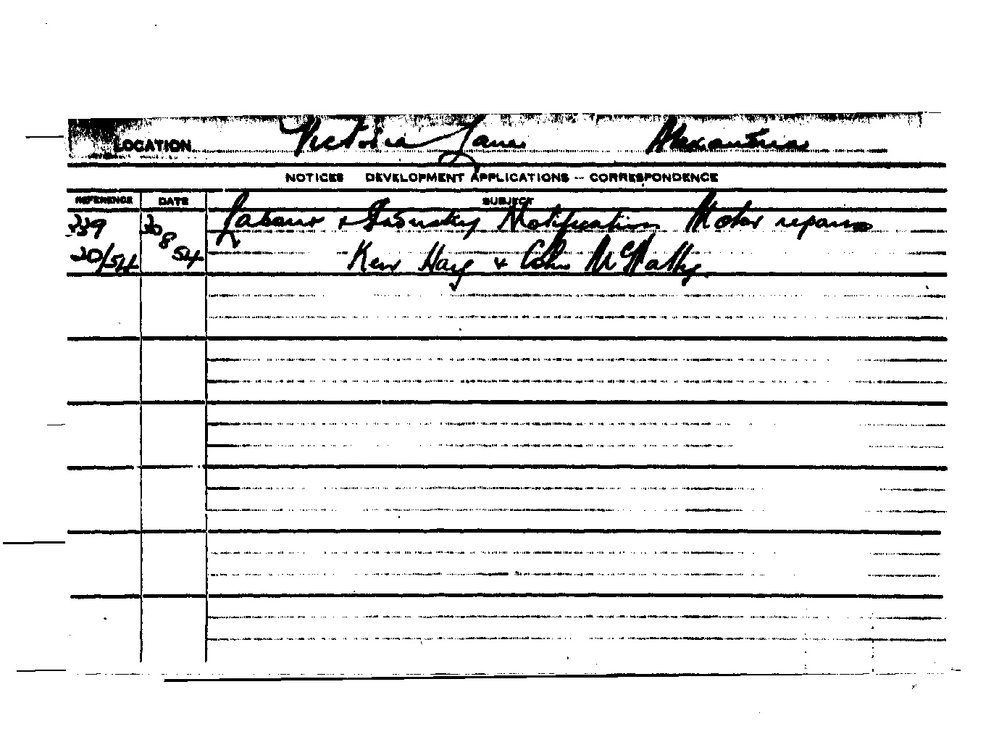 LOCATION Victoria Lane Alexandria
NOTICES DEVELOPMENT APPLICATIONS – CORRESPONDENCE
REFERENCE DATE SUBJECT
339 30 Labour & Industry Notification Motor repairs
20/54 8 54 Ken Hay & Colin McNally.